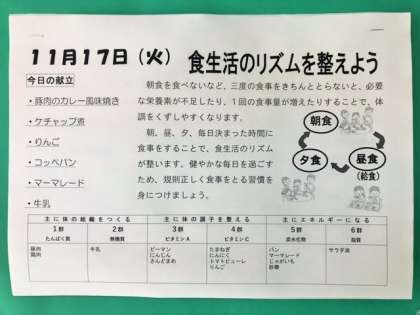 11月17日（火）　食生活のリズムを整えよう
今日の献立
・豚肉のカレー風味焼き
・ケチャップ煮
・りんご
・コッペパン
・マーマレード
・牛乳
朝食を食べないなど、三度の食事をきちんととらないと、必要
な栄養素が不足したり、1回の食事量が増えたりすることで、体
調をくずしやすくなります。
朝、昼、夕、毎日決まった時間に
食事をすることで、食生活のリズム
が整います。健やかな毎日を過ごす
ため、規則正しく食事をとる習慣を
身につけましょう。
朝食
夕食
昼食
（給食）
主に体の組織をつくる　主に体の調子を整える　主にエネルギーになる
1群　2群　3群　4群　5群　6群
たんぱく質　無機質　ビタミンA　ビタミンC　炭水化物　脂質
豚肉　牛乳　ピーマン　たまねぎ　パン　サラダ油
鶏肉　にんじん　にんにく　マーマレード
さんどまめ　トマトピューレ　じゃがいも
りんご　砂糖